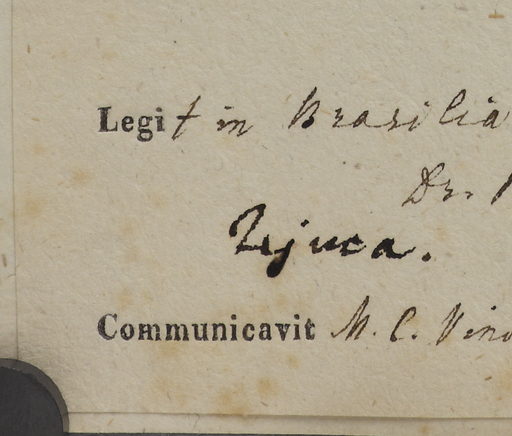 Legit in Brasilia
Dr.
Tejuca.
Communicavit M. C.